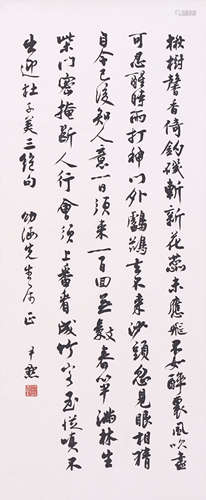 楸樹馨香倚釣磯斬新花蕊未應飛不如醉裏風吹盡
可忍醒時雨打稀門外鸕鷀去不來沙頭忽見眼相猜
自今已後知人意一日須來一百回無數春筍滿林生
柴門密掩斷人行會須上番看成竹客至從嗔不
出迎杜子美三絕句 幼涵先生屬正 尹默